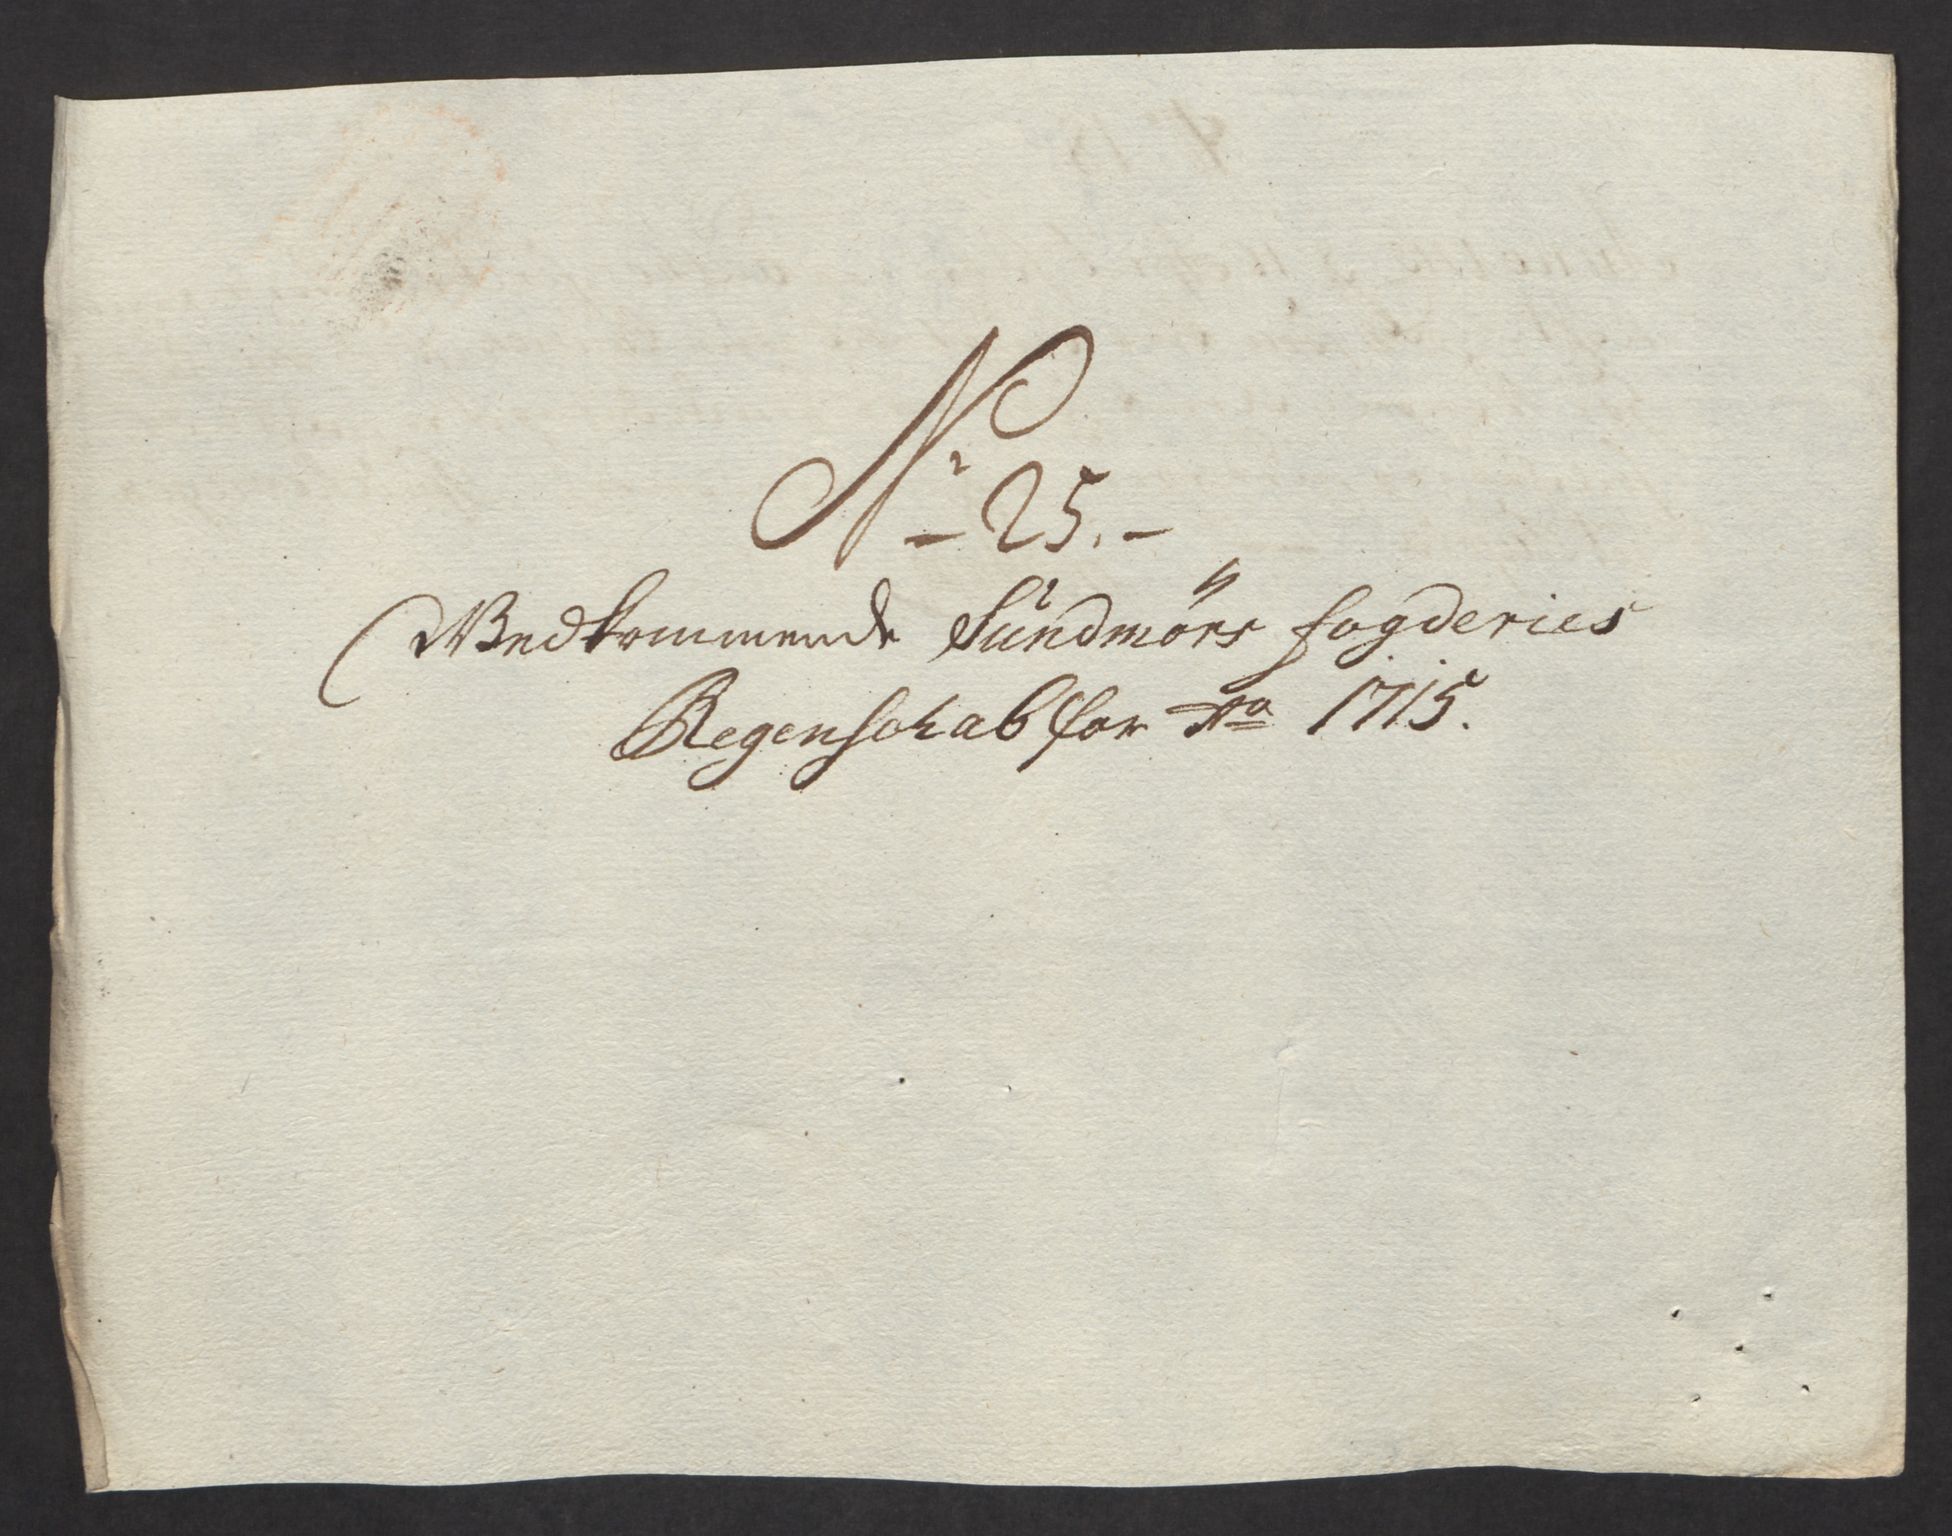 No 25.
Vedkommende Sundmörs fogderies
Regenschab for Ao 1715.